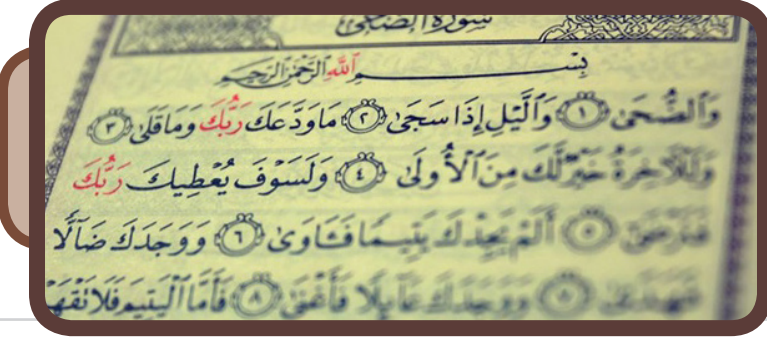 سورة الضحى
بِسْمِ ٱللَّهِ ٱلرَّحْمَٰنِ ٱلرَّحِيمِ
وَٱلضُّحَىٰ ١ وَٱلَّيْلِ إِذَا سَجَىٰ ٢ مَا وَدَّعَكَ رَبُّكَ وَمَا قَلَىٰ ٣
وَلَلْآخِرَةُ خَيْرٌ لَّكَ مِنَ ٱلْأُولَىٰ ٤ وَلَسَوْفَ يُعْطِيكَ رَبُّكَ
فَتَرْضَىٰ ٥ أَلَمْ يَجِدْكَ يَتِيمًا فَـَٔاوَىٰ ٦ وَوَجَدَكَ ضَآلًّا
فَهَدَىٰ ٧ وَوَجَدَكَ عَآئِلًا فَأَغْنَىٰ ٨ فَأَمَّا ٱلْيَتِيمَ فَلَا تَقْهَ